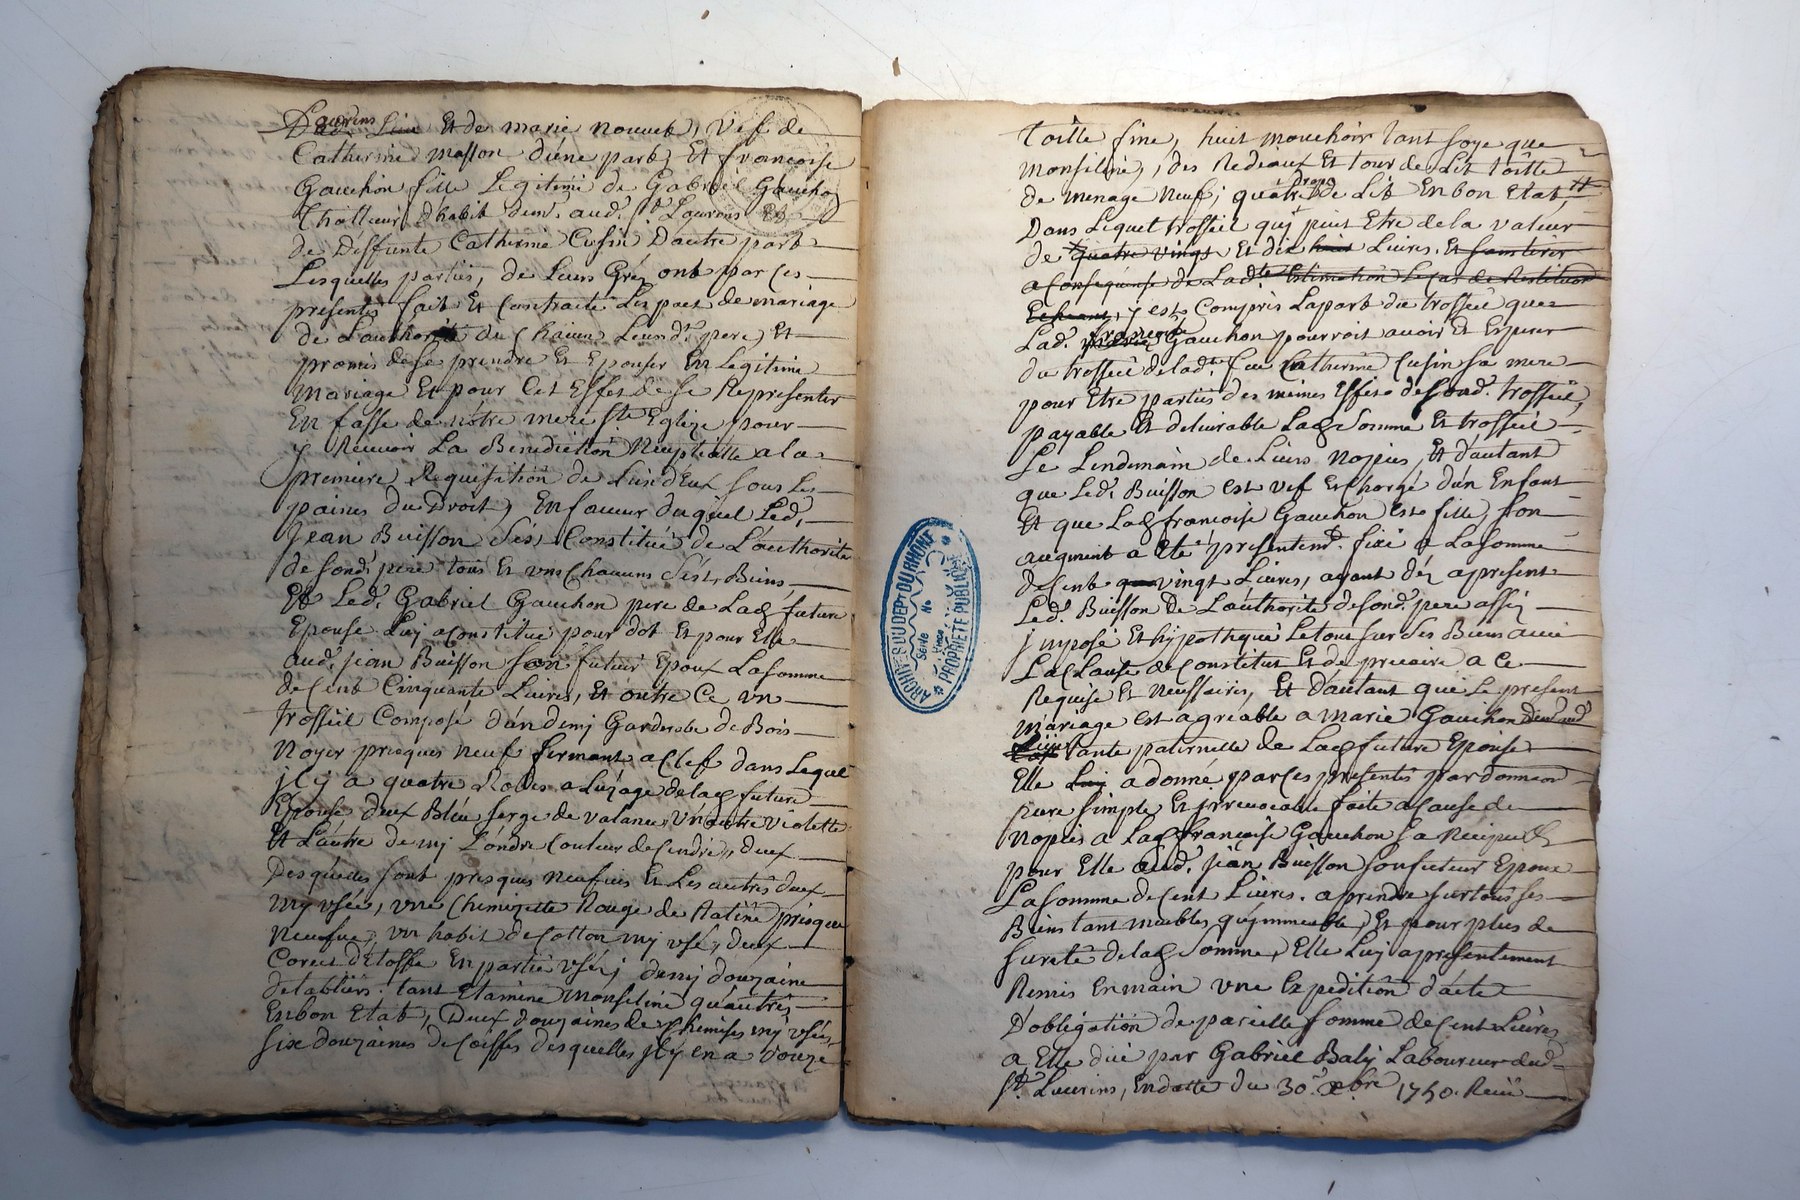 Laurens
Et de marie nouvel, Vef de
Catherine masson d'une part, Et françoise
Gauchon fille Legitime de Gabriel Gaucho
d'habit dem.t aud.t St Laurens Et
de Deffunte Catherine Cusin D'autre part
Lesquelles parties, de Leurs Gréz ont par ces
presentes fait Et Contracté Les pact de mariage
de L'authorité de Chacun Leursd. pere, Et
promis de se prendre Et Epouser En Legitime
mariage Et pour Cet Effet de se Representer
En fasse de nôtre mere Ste Eglize pour
y Recevoir La Benediction Nuptialle a la
premiere Requisition de L'un d'Eux sous Les
paines du Droit, En faveur duquel Led.
Jean Buisson s'est Constitué de L'authorité
de sond. pere tous Et uns Chacuns ses Biens,
Et Led. Gabriel Gauchon pere de Lad future
Epouse Luy a Constitué pour dot Et pour Elle
aud. jean Buisson son futur Epoux La somme
de Cent Cinquante Livres, Et outre Ce un
trosseil Composé d'un demj Garderobe de Bois
noyer presques neuf fermant a Clef dans Lequel
jl y a quatre Robes a L'uzage de lad future
Epouse deux Bleu serge de valance, un autre violette
Et L'autre de mj Londre Couleur de Cendre, deux
Desquelles sont presques neufves Et Les autres deux
my usées, une Chemizette Rouge de Ratine presque
neufve, un habit de Cotton mj usé, deux
Corcet d'Etoffe En partie usé, demj douzaine
de tabliers tant Etamine Monseline qu'autres
En bon Etat, Deux douzaines de Chemises my usées,
Six douzaines de Coiffes desquelles jl y en a douze
toille fine, huit mouchoir tant soye que
monseline, des Redeaux Et tour de Lit toille
de menage neuf, quatre draps de Lit En bon Etat,
Dans Lequel trosseil quj peut Etre de la valeur
de quatre vingt Et dix Livres, Et sans tirer
a Consequence de Lad.te Estimation Le Cas de Restitution
Echeant, y est Compris La part du trosseil que
Lad. françoise Gauchon pourroit avoir Et Esperer
du trosseil de lad. feue Catherine Cusin sa mere
pour Etre partie des mêmes Effets de sond. trosseil,
payable Et delivrable Lad Somme Et trosseil
Le Lendemain de Leurs Nopces, Et d'autant
que Led. Buisson est vef Et chargé d'un Enfant
Et que Lad françoise Gauchon est fille, son
augment a Eté presentem.t fixé a La somme
de Cent vingt Livres, ayant déz apresent
Led. Buisson de L'authorité de sond. pere assis
jmposé Et hypothequé Le tout sur ses Biens avec
La Clause de Constitut Et de precaire a Ce
Requise Et Nessaires, Et d'autant que Le present
mariage est agreable a marie Gauchon
tante paternelle de Lad future Epouse
Elle a donné par ces presentes par donnaon
pure simple Et jrrevocable faite a Cause de
nopces a Lad françoise Gauchon sa
pour Elle aud. jean Buisson son futeur Epoux
La somme de Cent Livres. a prendre sur tous ses
Biens tant meubles qu'jmmeubles, Et pour plus de
sureté de lad Somme, Elle Luy a presentement
Remis En main une Expedition d'acte
D'obligation de pareille somme de Cent Livres
a Elle due par Gabriel Baly Laboureur dud
St. Laurens, En datte du 30. Xbre 1750. Receu
ARCHIVES DU DEPT DU RHONE
Série
No
PROPRIETE PUBLIQUE